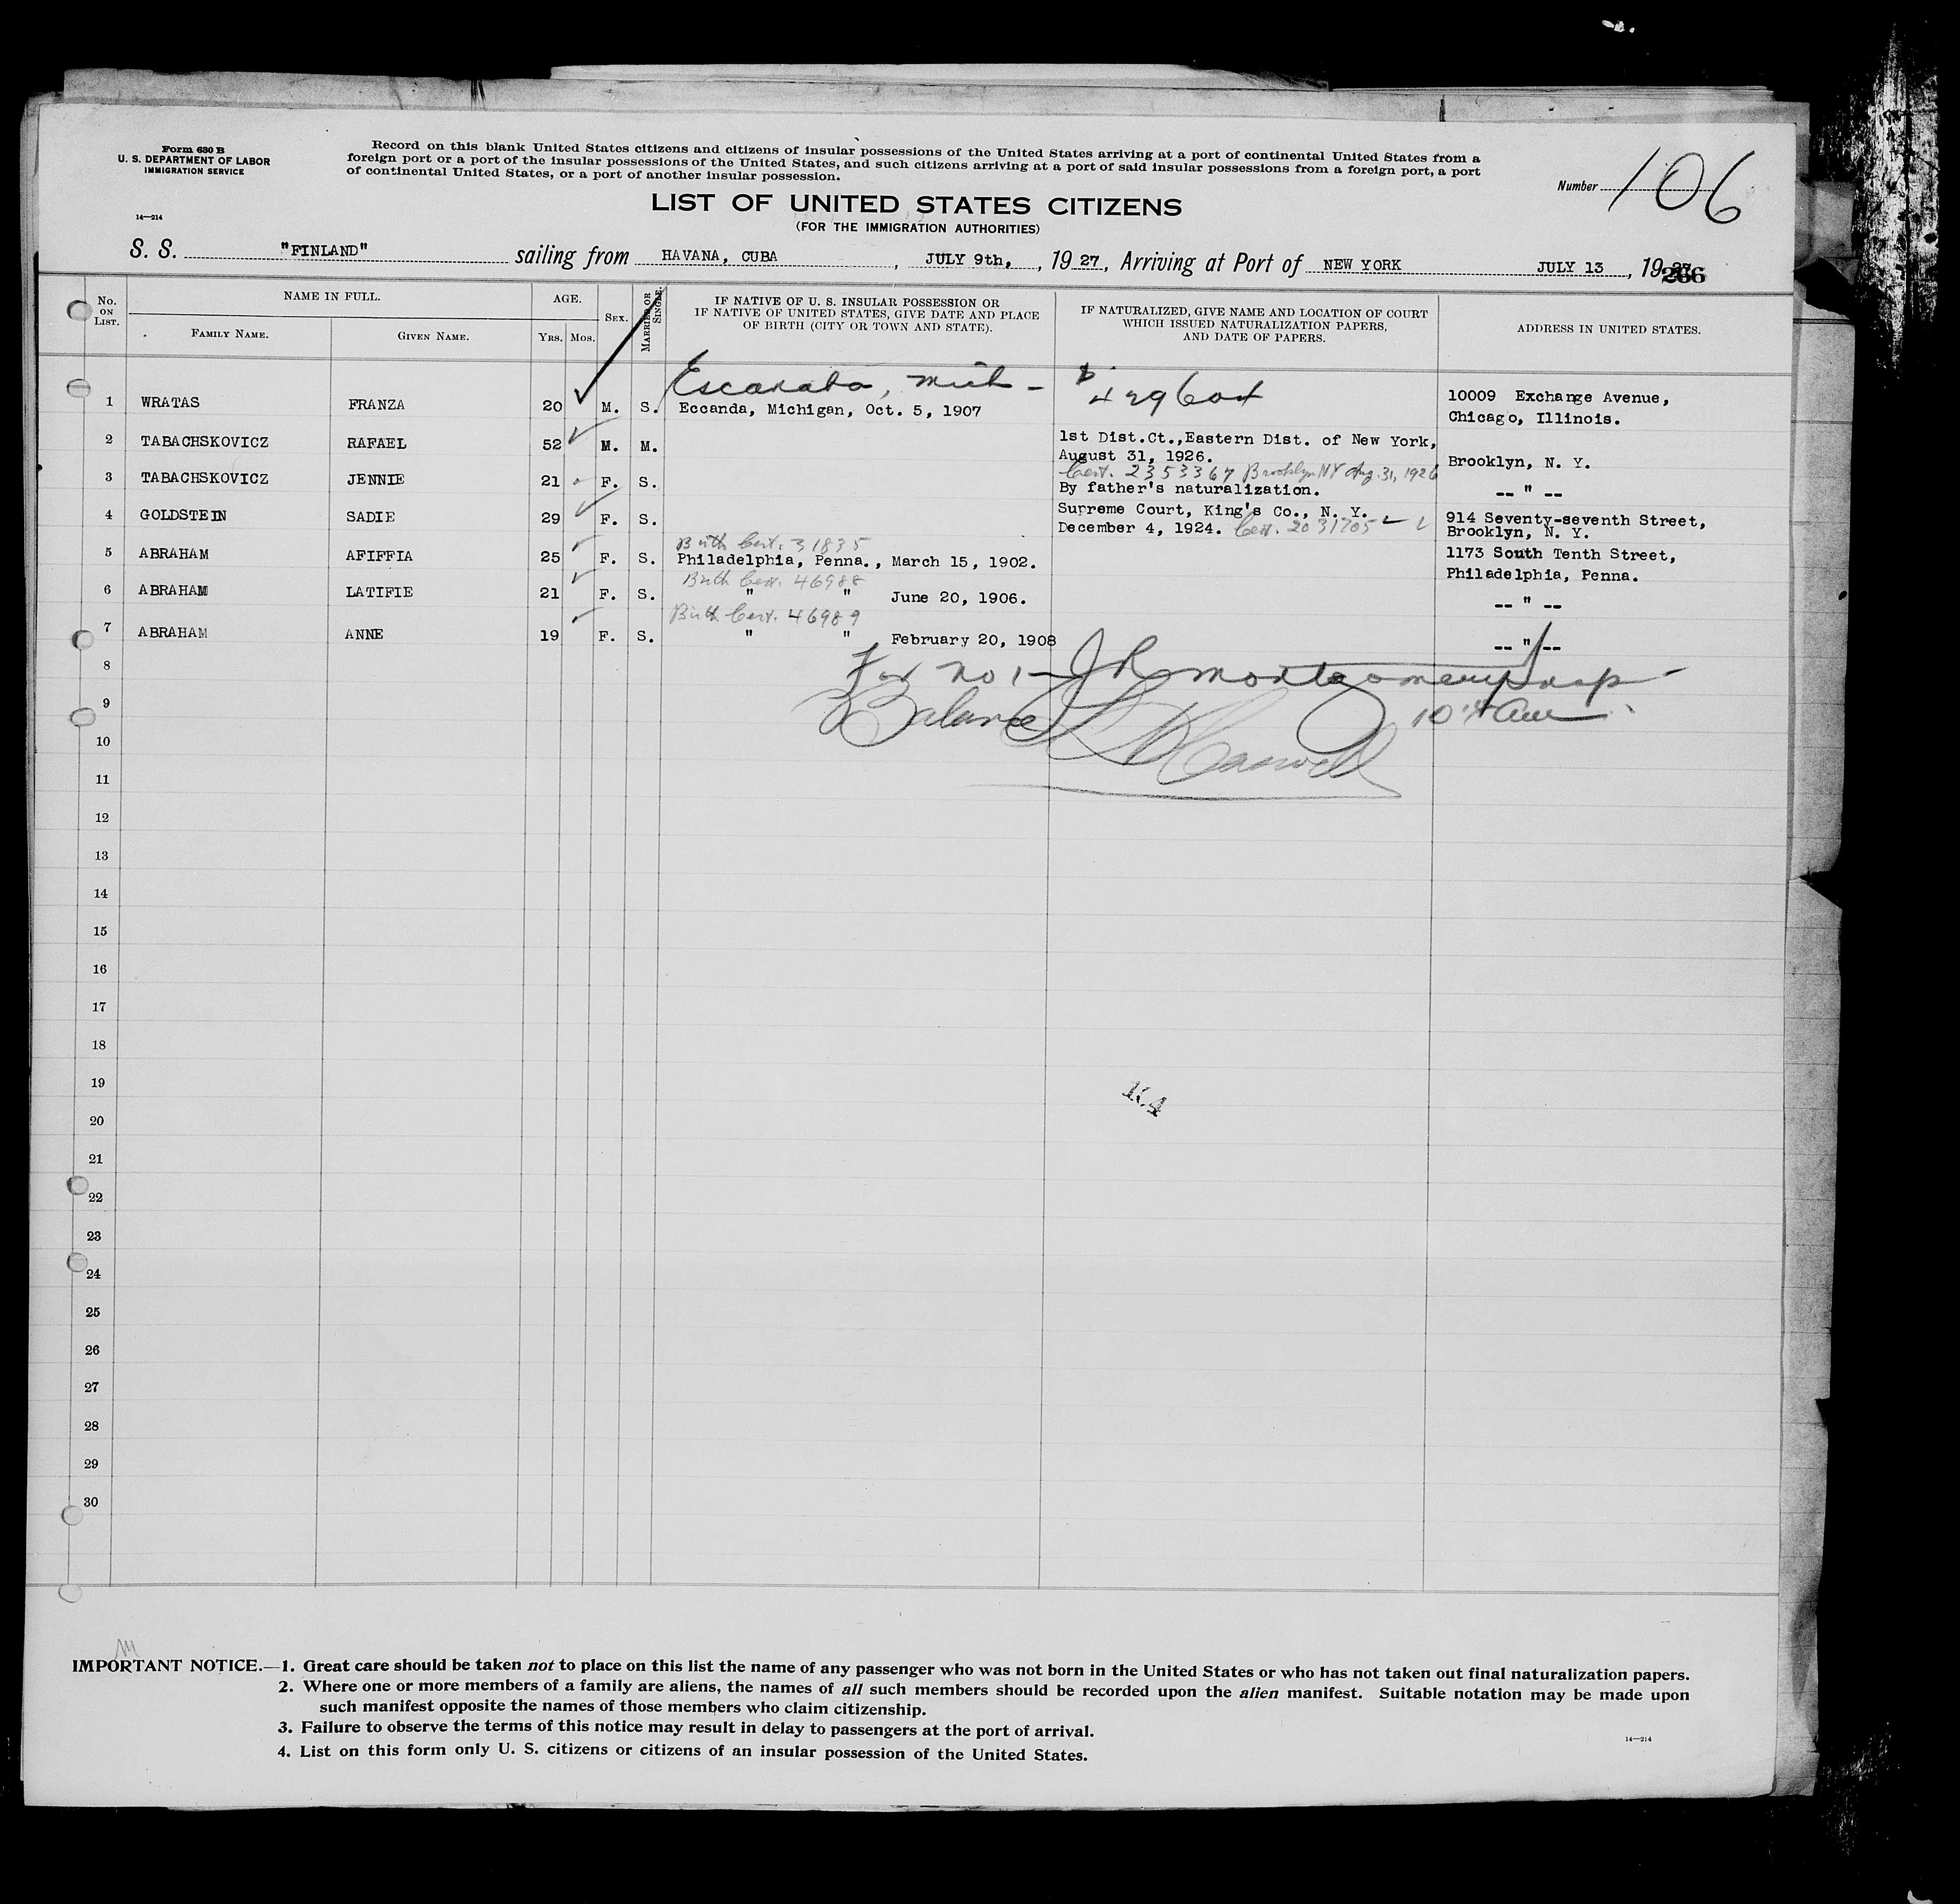 Form 630 B
U. S. DEPARTMENT OF LABOR
IMMIGRATION SERVICE
14—214
Record on this blank United States citizens and citizens of insular possessions of the United States arriving at a port of continental United States from a
foreign port or a port of the insular possessions of the United States, and such citizens arriving at a port of said insular possessions from a foreign port, a port
of continental United States, or a port of another insular possession.
Number 106
LIST OF UNITED STATES CITIZENS
(FOR THE IMMIGRATION AUTHORITIES)
S. S. "FINLAND" sailing from HAVANA, CUBA, JULY 9th, 1927, Arriving at Port of NEW YORK JULY 13, 1927
266
No. ON LIST.
NAME IN FULL.
FAMILY NAME.
GIVEN NAME.
AGE.
YRS.
MOS.
SEX.
MARRIED OR SINGLE.
IF NATIVE OF U. S. INSULAR POSSESSION OR
IF NATIVE OF UNITED STATES, GIVE DATE AND PLACE
OF BIRTH (CITY OR TOWN AND STATE).
IF NATURALIZED, GIVE NAME AND LOCATION OF COURT
WHICH ISSUED NATURALIZATION PAPERS,
AND DATE OF PAPERS.
ADDRESS IN UNITED STATES.
Escanaba, Mich -
1 WRATAS FRANZA 20 M. S. Eccanda, Michigan, Oct. 5, 1907 10009 Exchange Avenue,
Chicago, Illinois.
2 TABACHSKOVICZ RAFAEL 52 M. M. 1st Dist.Ct.,Eastern Dist. of New York,
August 31, 1926. Brooklyn, N. Y.
Cert. 2353367 Brooklyn NY Aug. 31, 1926
3 TABACHSKOVICZ JENNIE 21 F. S. By father's naturalization. -- " --
4 GOLDSTEIN SADIE 29 F. S. Supreme Court, King's Co., N. Y. 914 Seventy-seventh Street,
December 4, 1924. Cert. 2031705 Brooklyn, N. Y.
Birth Cert. 31835
5 ABRAHAM AFIFFIA 25 F. S. Philadelphia, Penna., March 15, 1902. 1173 South Tenth Street,
Philadelphia, Penna.
Birth Cert. 46988
6 ABRAHAM LATIFIE 21 F. S. " " June 20, 1906. -- " --
Birth Cert. 46989
7 ABRAHAM ANNE 19 F. S. " " February 20, 1908 -- " --
8 For no 1 - J R Montgomery Insp
9 Balance
10
11
12
13
14
15
16
17
18
19
20
21
22
23
24
25
26
27
28
29
30
IMPORTANT NOTICE.—1. Great care should be taken not to place on this list the name of any passenger who was not born in the United States or who has not taken out final naturalization papers.
2. Where one or more members of a family are aliens, the names of all such members should be recorded upon the alien manifest. Suitable notation may be made upon
such manifest opposite the names of those members who claim citizenship.
3. Failure to observe the terms of this notice may result in delay to passengers at the port of arrival.
4. List on this form only U. S. citizens or citizens of an insular possession of the United States.
14—214